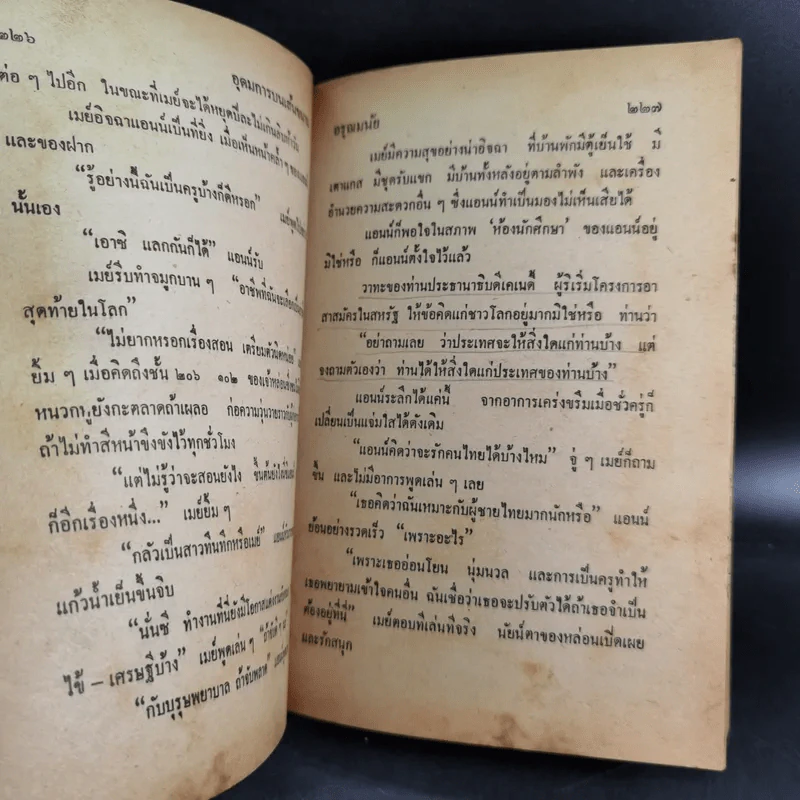 ๒๒๖
อุดมการบนเส้นขนาน
ต่อ ๆ ไปอีก ในขณะที่เมย์จะได้หยุดปีละไม่เกิน
เมย์อิจฉาแอนน์เป็นที่ยิ่ง เมื่อเห็นหน้าคล้ำ ๆ ของ
และของฝาก
“รู้อย่างนี้ฉันเป็นครูบ้างก็ดีหรอก” เมย์
นั้นเอง
“เอาซิ แลกกันก็ได้” แอนน์รับ
เมย์รีบทำจมูกบาน ๆ “อาชีพที่ฉันจะเลือก
สุดท้ายในโลก”
“ไม่ยากหรอกเรื่องสอน เตรียมตัวนิดหน่อย
ยิ้ม ๆ เมื่อคิดถึงชั้น ๒๐๖ ๑๐๒ ของเจ้าหล่อน
หนวกหูยังกะตลาดถ้าเผลอ ก่อความวุ่นวาย
ถ้าไม่ทำสีหน้าขึงขังไว้ทุกชั่วโมง
“แต่ไม่รู้ว่าจะสอนยังไง ขึ้นต้นยังไง
ก็อีกเรื่องหนึ่ง...” เมย์ยิ้ม ๆ
“กลัวเป็นสาวทึนทึกหรือเมย์” แอนน์
แก้วน้ำเย็นขึ้นจิบ
“นั่นซี ทำงานที่นี่ยังมีโอกาสแต่งงานกับ
ไข้ – เศรษฐีบ้าง” เมย์พูดเล่น ๆ
“กับบุรุษพยาบาล ถ้าจับพลาด”
อรุณมนัย
๒๒๗
เมย์มีความสุขอย่างน่าอิจฉา ที่บ้านพักมีตู้เย็นใช้ มี
เตาแกส มีชุดรับแขก มีบ้านทั้งหลังอยู่ตามลำพัง และเครื่อง
อำนวยความสะดวกอื่น ๆ ซึ่งแอนน์ทำเป็นมองไม่เห็นเสียได้
แอนน์ก็พอใจในสภาพ ‘ห้องนักศึกษา’ ของแอนน์อยู่
มิใช่หรือ ก็แอนน์ตั้งใจไว้แล้ว
วาทะของท่านประธานาธิบดีเคเนดี้ ผู้ริเริ่มโครงการอา
สาสมัครในสหรัฐ ให้ข้อคิดแก่ชาวโลกอยู่มากมิใช่หรือ ท่านว่า
“อย่าถามเลย ว่าประเทศจะให้สิ่งใดแก่ท่านบ้าง แต่
จงถามตัวเองว่า ท่านได้ให้สิ่งใดแก่ประเทศของท่านบ้าง”
แอนน์ระลึกได้แค่นี้ จากอาการเคร่งขรึมเมื่อชั่วครู่ก็
เปลี่ยนเป็นแจ่มใสได้ดังเดิม
“แอนน์คิดว่าจะรักคนไทยได้บ้างไหม” จู่ ๆ เมย์ก็ถาม
ขึ้น และไม่มีอาการพูดเล่น ๆ เลย
“เธอคิดว่าฉันเหมาะกับผู้ชายไทยมากนักหรือ” แอนน์
ย้อนอย่างรวดเร็ว “เพราะอะไร”
“เพราะเธออ่อนโยน นุ่มนวล และการเป็นครูทำให้
เธอพยายามเข้าใจคนอื่น ฉันเชื่อว่าเธอจะปรับตัวได้ถ้าเธอจำเป็น
ต้องอยู่ที่นี่” เมย์ตอบทีเล่นทีจริง นัยน์ตาของหล่อนเปิดเผย
และรักสนุก